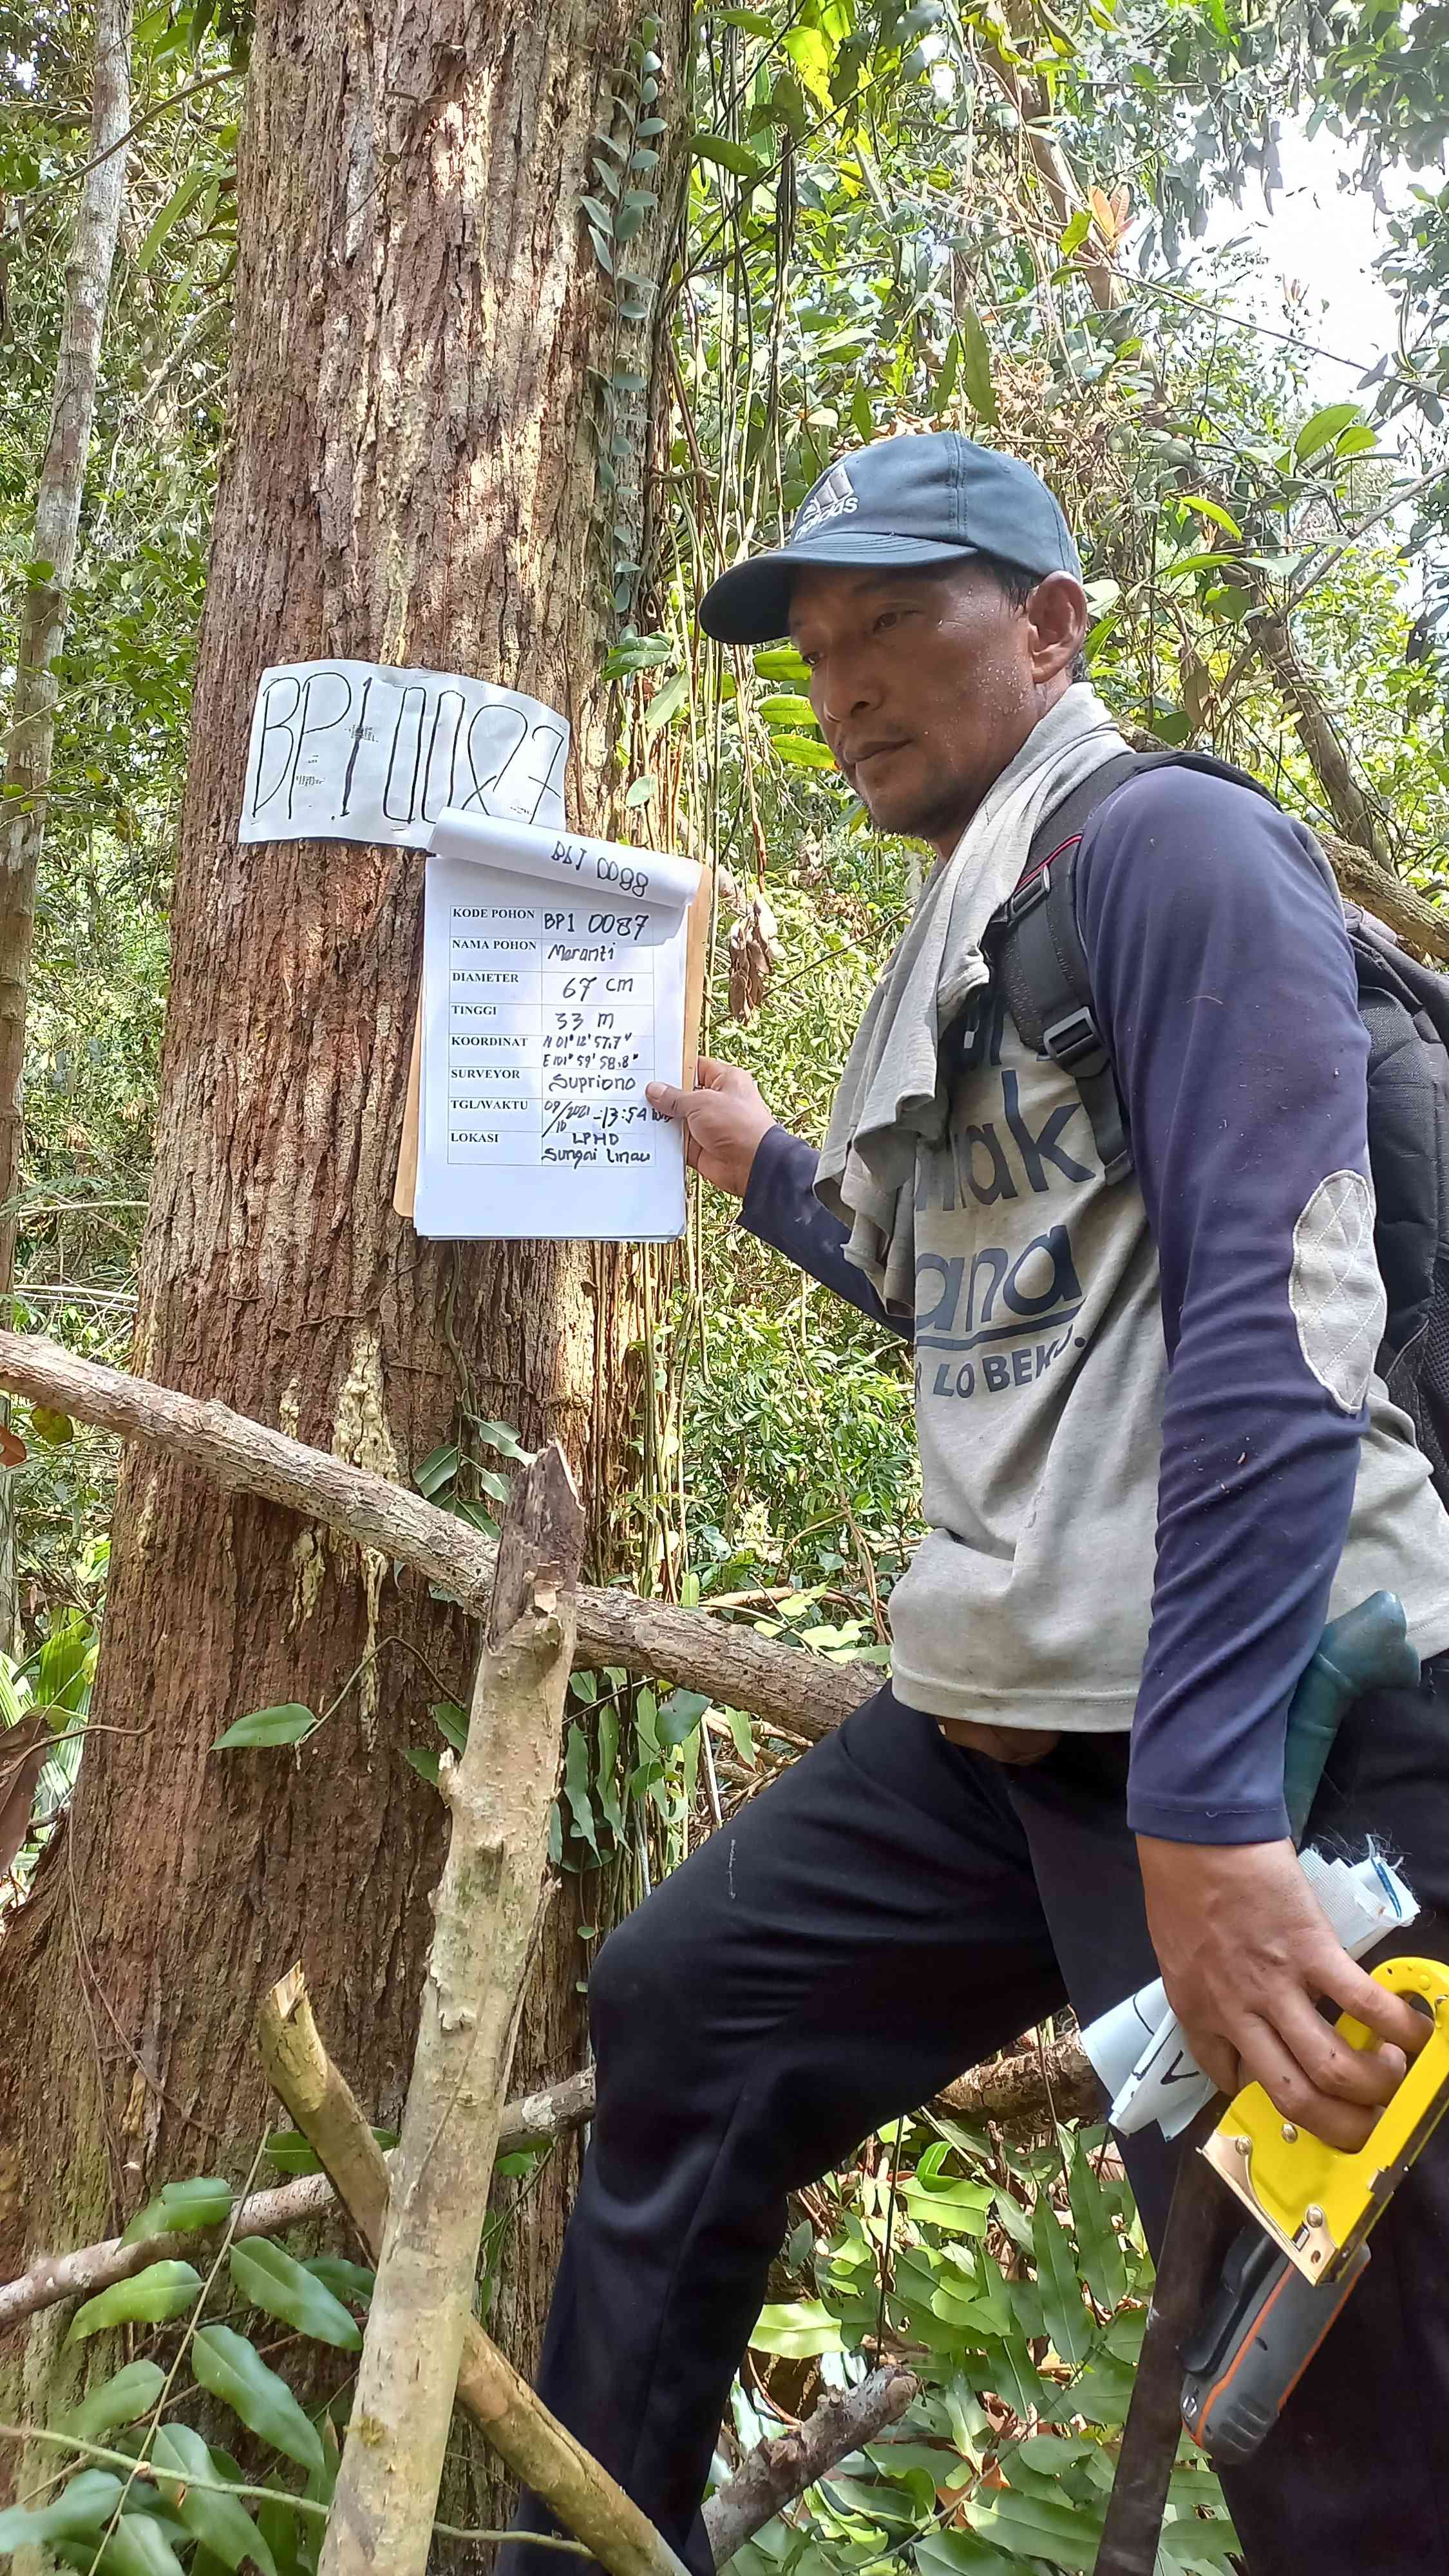 adidas
BP1 0087
BP1 0098
KODE POHON BP1 0087
NAMA POHON Meranti
DIAMETER 67 cm
TINGGI 33 m
KOORDINAT N 01° 12' 57,7"
E 101° 59' 58,8"
SURVEYOR Supriono
TGL/WAKTU 09/10/2021 - 13:54 WIB
LOKASI LPHD
Sungai Linau
ana
LO BEK